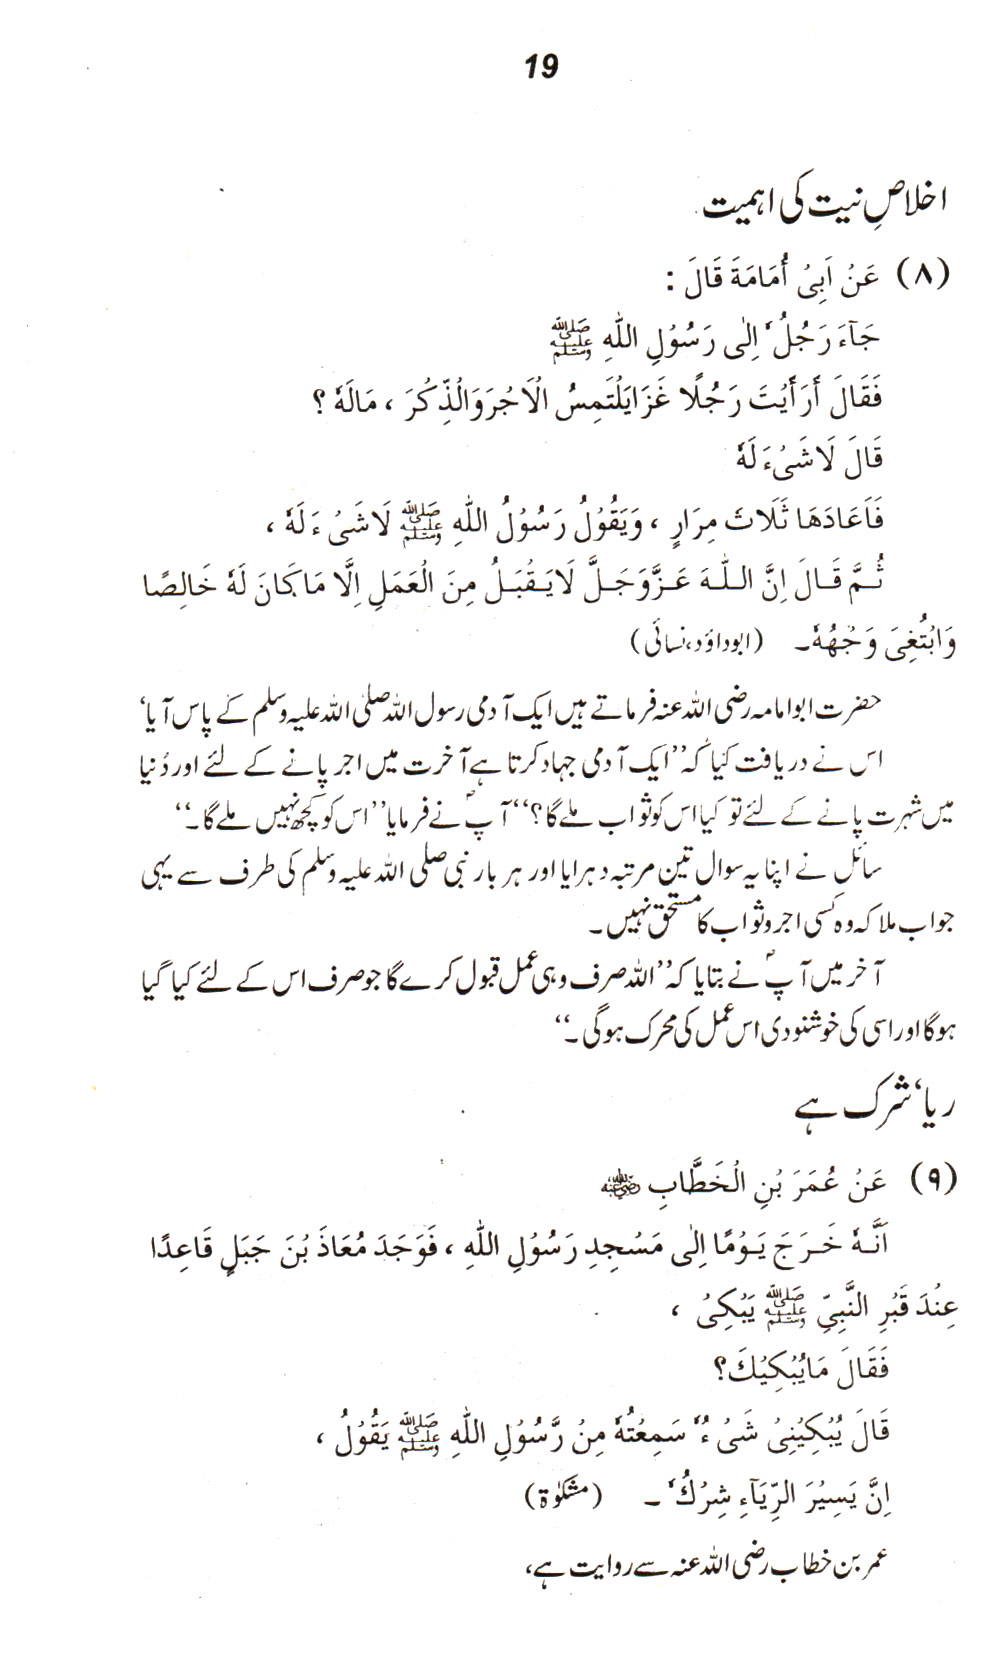 19
اخلاصِ نیت کی اہمیت
(۸) عَنْ اَبِیْ أُمَامَةَ قَالَ :
جَآءَ رَجُلٌ اِلٰی رَسُوْلِ اللّٰهِ ﷺ
فَقَالَ أَرَأَيْتَ رَجُلًا غَزَا يَلْتَمِسُ الْاَجْرَ وَالذِّكْرَ ، مَالَهٗ ؟
قَالَ لَا شَیْءَ لَهٗ
فَاَعَادَهَا ثَلَاثَ مِرَارٍ ، وَيَقُوْلُ رَسُوْلُ اللّٰهِ ﷺ لَا شَیْءَ لَهٗ ،
ثُمَّ قَالَ اِنَّ اللّٰهَ عَزَّوَجَلَّ لَا يَقْبَلُ مِنَ الْعَمَلِ اِلَّا مَا كَانَ لَهٗ خَالِصًا
وَابْتُغِیَ وَجْهُهٗ۔ (ابوداؤد، نسائی)
حضرت ابوامامہ رضی اللہ عنہ فرماتے ہیں ایک آدمی رسول اللہ صلی اللہ علیہ وسلم کے پاس آیا‘
اس نے دریافت کیا کہ ’’ایک آدمی جہاد کرتا ہے آخرت میں اجر پانے کے لئے اور دُنیا
میں شہرت پانے کے لئے تو کیا اس کو ثواب ملے گا؟‘‘ آپؐ نے فرمایا ’’اس کو کچھ نہیں ملے گا۔‘‘
سائل نے اپنا یہ سوال تین مرتبہ دہرایا اور ہر بار نبی صلی اللہ علیہ وسلم کی طرف سے یہی
جواب ملا کہ وہ کسی اجر و ثواب کا مستحق نہیں۔
آخر میں آپؐ نے بتایا کہ ’’اللہ صرف وہی عمل قبول کرے گا جو صرف اس کے لئے کیا گیا
ہوگا اور اسی کی خوشنودی اس عمل کی محرک ہوگی۔‘‘
ریا‘ شرک ہے
(۹) عَنْ عُمَرَ بْنِ الْخَطَّابِ ؓ
اَنَّهٗ خَرَجَ يَوْمًا اِلٰی مَسْجِدِ رَسُوْلِ اللّٰهِ ، فَوَجَدَ مُعَاذَ بْنَ جَبَلٍ قَاعِدًا
عِنْدَ قَبْرِ النَّبِیِّ ﷺ يَبْكِیْ ،
فَقَالَ مَا يُبْكِيْكَ؟
قَالَ يُبْكِيْنِیْ شَیْءٌ سَمِعْتُهٗ مِنْ رَّسُوْلِ اللّٰهِ ﷺ يَقُوْلُ ،
اِنَّ يَسِيْرَ الرِّيَآءِ شِرْكٌ ۔ (مشکوٰۃ)
عمر بن خطاب رضی اللہ عنہ سے روایت ہے،